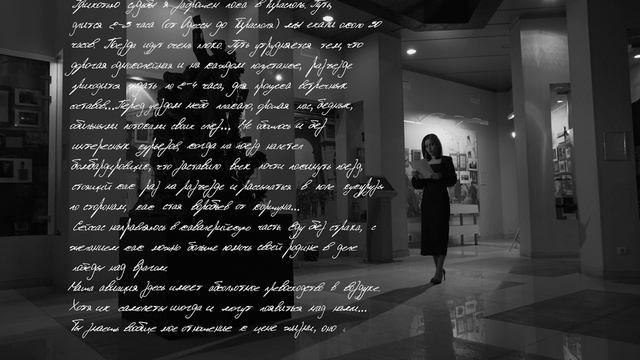 судьбы я заброшен пока в Красноль. Путь,
длится 2-3 часа (от Одессы до Красноля) мы ехали около 20
часов. Поезда идут очень плохо. Путь утрудняется тем, что
дорога одноколейная и на каждом полустанке, разъезде
приходится ждать по 2-4 часа, для пропуска встречных
составов... Перед уездом небо плакало, орошая нас, бедных,
обильными потоками своих слез... Не обошлось и без
интересных курьезов, когда на поезд налетел
бомбардировщик, что заставило всех почти покинуть поезд,
стоящий как раз на разъезде и рассыпаться в поле кукурузы
по сторонам, как стая воробьев от коршуна...
Сейчас направляюсь в кавалерийскую часть. Еду без страха, с
желанием как можно больше помочь своей родине в деле
победы над врагом.
Наша авиация здесь имеет абсолютное превосходство в воздухе.
Хотя их самолеты иногда и могут появиться над нами...
Ты знаешь вообще мое отношение к цене жизни, оно